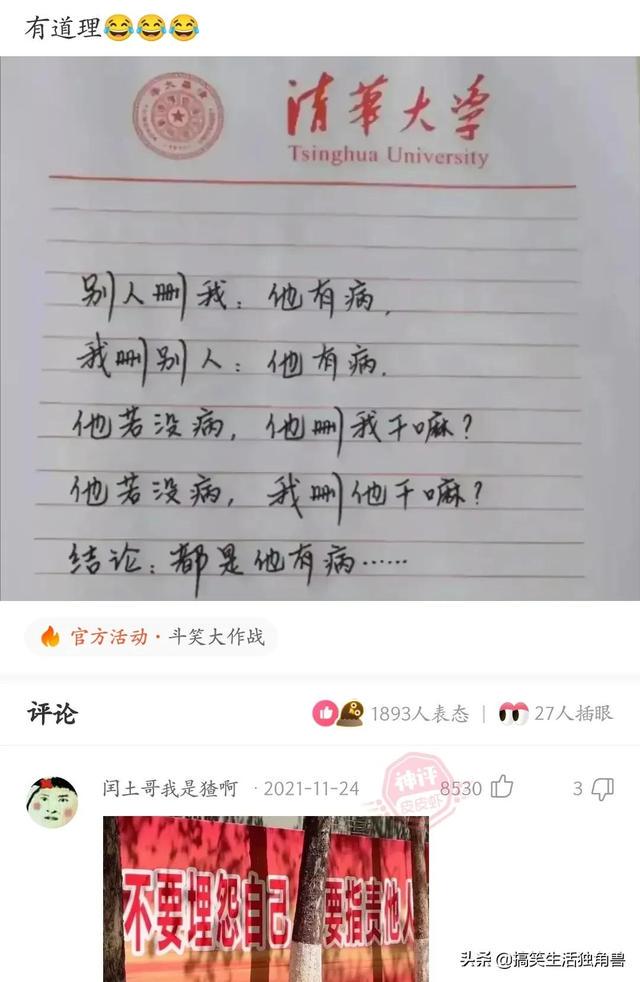 有道理😂😂😂
清华大学
Tsinghua University
别人删我：他有病.
我删别人：他有病.
他若没病，他删我干嘛？
他若没病，我删他干嘛？
结论：都是他有病……
官方活动·斗笑大作战
评论
1893人表态
27人插眼
闰土哥我是猹啊
·2021-11-24
神评
皮皮虾
8530
3
不要埋怨自己
要指责他人
头条 @搞笑生活独角兽